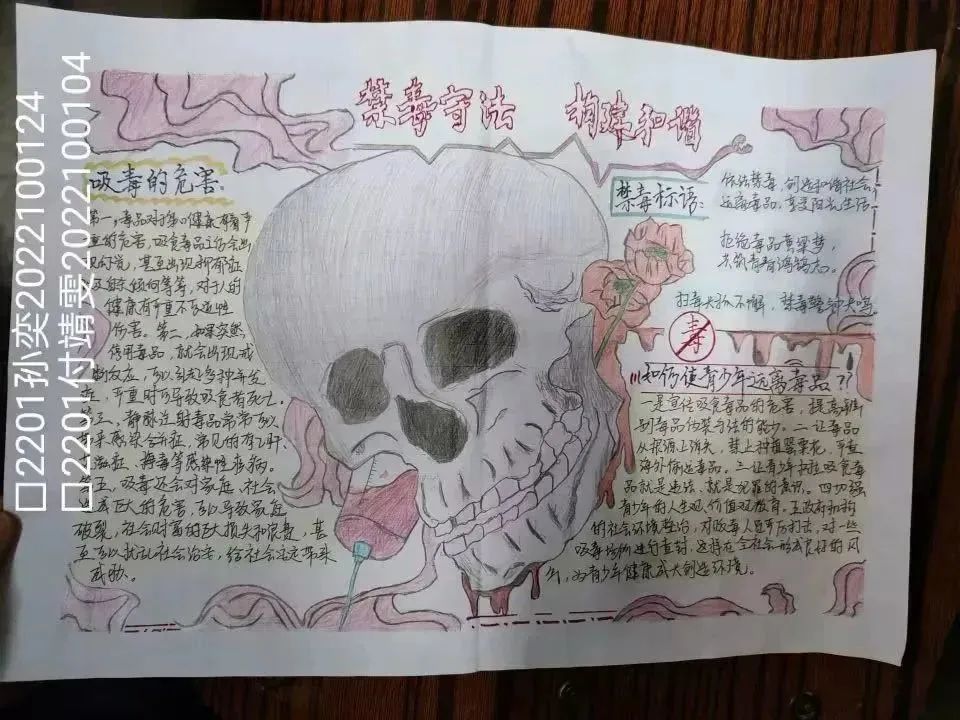 禁毒守法 构建和谐
吸毒的危害:
第一,毒品对身心健康有着严
重的危害,吸食毒品之后会出
幻觉,甚至出现抑郁症
及自杀倾向等等,对于人的
健康有严重不可逆性
伤害。第二,如果突然
停用毒品,就会出现戒
断反应,可以引起多种并发
症,严重时可导致吸食者死亡。
第三、静脉注射毒品常常可以
带来感染合并症,常见的有乙肝、
艾滋症、梅毒等感染性疾病。
第五、吸毒还会对家庭、社会
造成巨大的危害,可以导致家庭
破裂,社会财富的巨大损失和浪费,甚
至可以扰乱社会治安,给社会安定带来
威胁。
禁毒标语:
依法禁毒,创造和谐社会,
远离毒品,享受阳光生活。
拒绝毒品黄粱梦,
共筑青春鸿鹄志。
扫毒大扒不懈,禁毒警钟长鸣。
毒
如何使青少年远离毒品??
一是宣传吸食毒品的危害,提高辨
别毒品伪装与法的能少。二让毒品
从根源上消失,禁止种植罂粟花,严查
海外偷运毒品。三让青少年树胜吸食毒
品就是违法、就是犯罪的意识。四加强
青少年的人生观,价值观教育。五政府和构
的社会环境整治,对贩毒人员严厉打击,对一些
吸毒场所进行查封,这样在全社会形成良好的风
气,为青少年健康成长创造环境。
口2201孙奕2022210100124
口2201付靖雯2022210100104